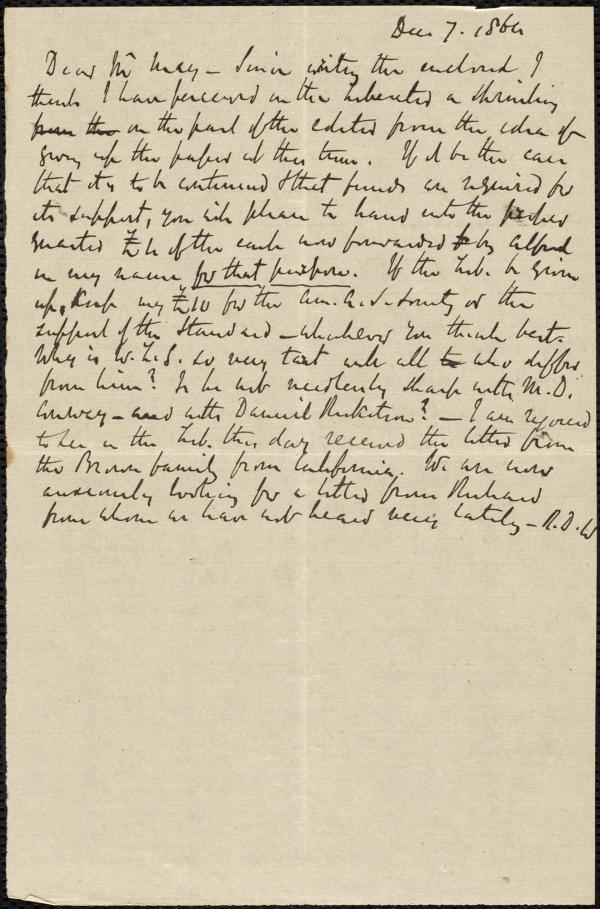 Dec 7. 1864
Dear Mr May – Since writing the enclosed I
think I have perceived in the Liberator a shrinking
from the on the part of the editor from the idea of
giving up the paper at this time. If it be the case
that it is to be continued & that funds are required for
its support, you will please to hand into the proper
quarter of the cash now forwarded by Alfred
in my name for that purpose. If the Lib. be given
up, keep my £10 for the Am. A. S. Society or the
support of the Standard – whichever you think best.
Why is W. L. G. so very tart with all who differ
from him? Is he not needlessly sharp with M. D.
Conway – and with Daniel Ricketson? – I am rejoiced
to see in the Lib. this day received the letter from
the Brown family from California. We are now
anxiously looking for a letter from Richard
from whom we have not heard very lately – R. D. W